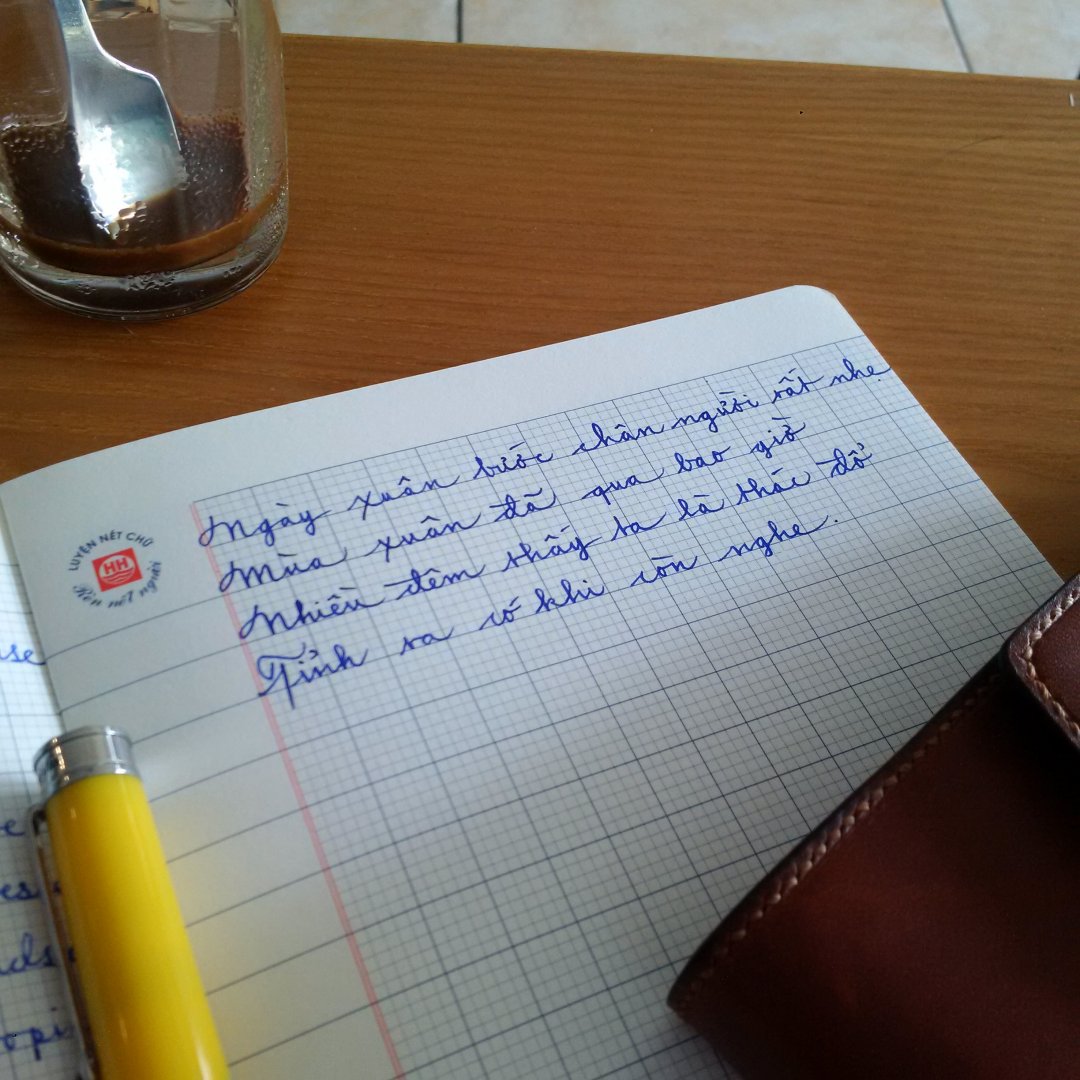 Ngày xuân bước chân người rất nhẹ
Mùa xuân đã qua bao giờ
Nhiều đêm thấy ta là thác đổ
Tỉnh ra có khi còn nghe.
LUYỆN NÉT CHỮ
HH
Rèn nết người